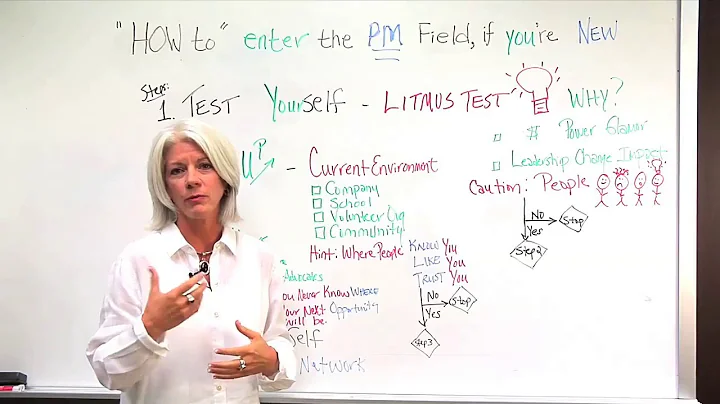 "HOW to" enter the PM Field, if you're NEW
Steps:
1. TEST Yourself - LITMUS TEST WHY?
$ Power Glamor
Leadership Change Impact
Caution: People
No Stop
Yes
Step 2
UP - Current Environment
Company
School
Volunteer Org
Community
Hint: Where People KNOW You
LIKE You
TRUST You
No Stop
Yes
Step 3
Advocates
You Never Know WHERE
Your Next Opportunity
will be.
Self
Network